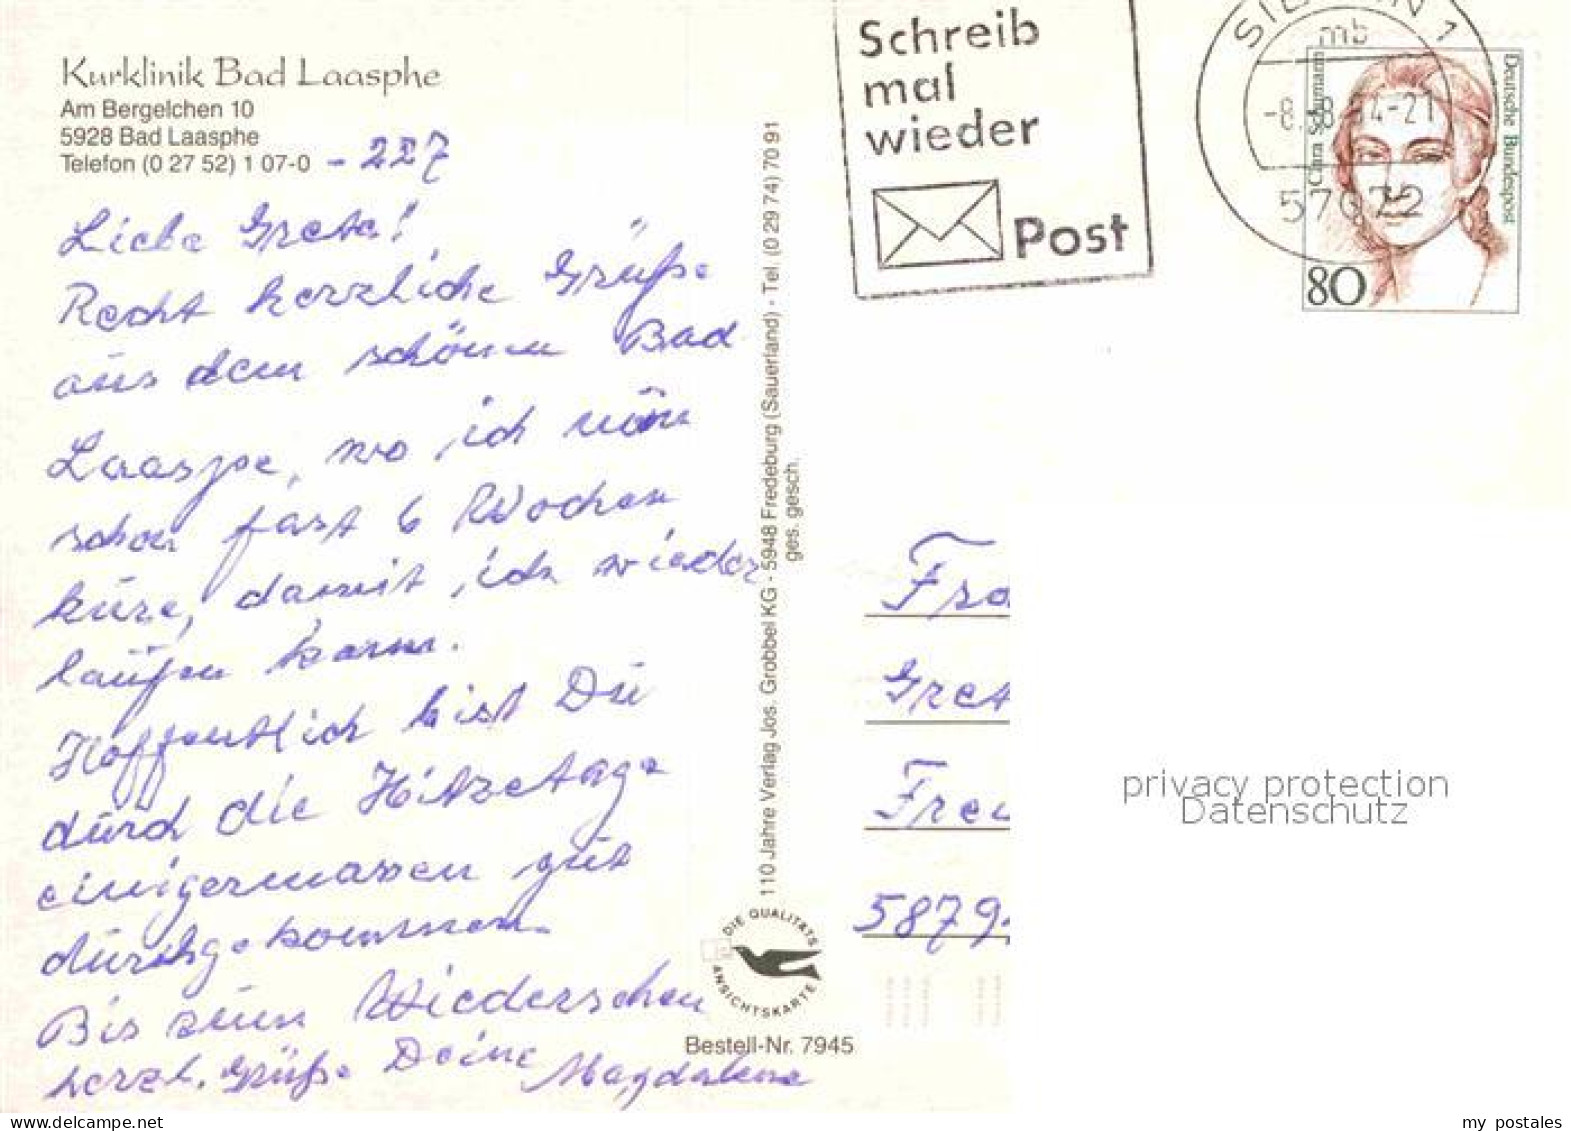 Kurklinik Bad Laasphe
Am Bergelchen 10
5928 Bad Laasphe
Telefon (0 27 52) 1 07-0 - 227
Liebe Greta!
Recht herzliche Grüße
aus dem schönen Bad
Laaspe, wo ich nun
schon fast 6 Wochen
kure, damit ich wieder
laufen kann.
Hoffentlich bist Du
durch die Hitzetage
einigermassen gut
durchgekommen.
Bis zum Wiedersehen
herzl. Grüße Deine Magdalena
110 Jahre Verlag Jos. Grobbel KG - 5948 Fredeburg (Sauerland) - Tel. (0 29 74) 70 91
ges. gesch.
DIE QUALITÄTS
ANSICHTSKARTE
Bestell-Nr. 7945
Schreib
mal
wieder
Post
1
mb
-21
57072
Clara Schumann
Deutsche Bundespost
80
Fra
Gret
Freu
5879
privacy protection
Datenschutz
https://www.delcampe.net
my_postales